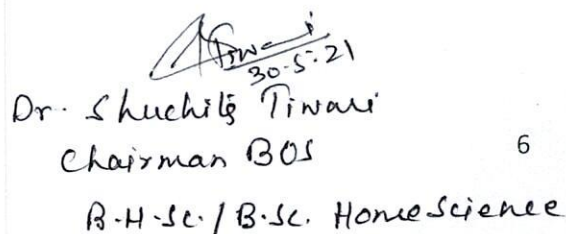 Tiwari
30-5-21
Dr. Shuchi Tiwari
Chairman BOS
6
B.H.Sc. / B.Sc. Home Science